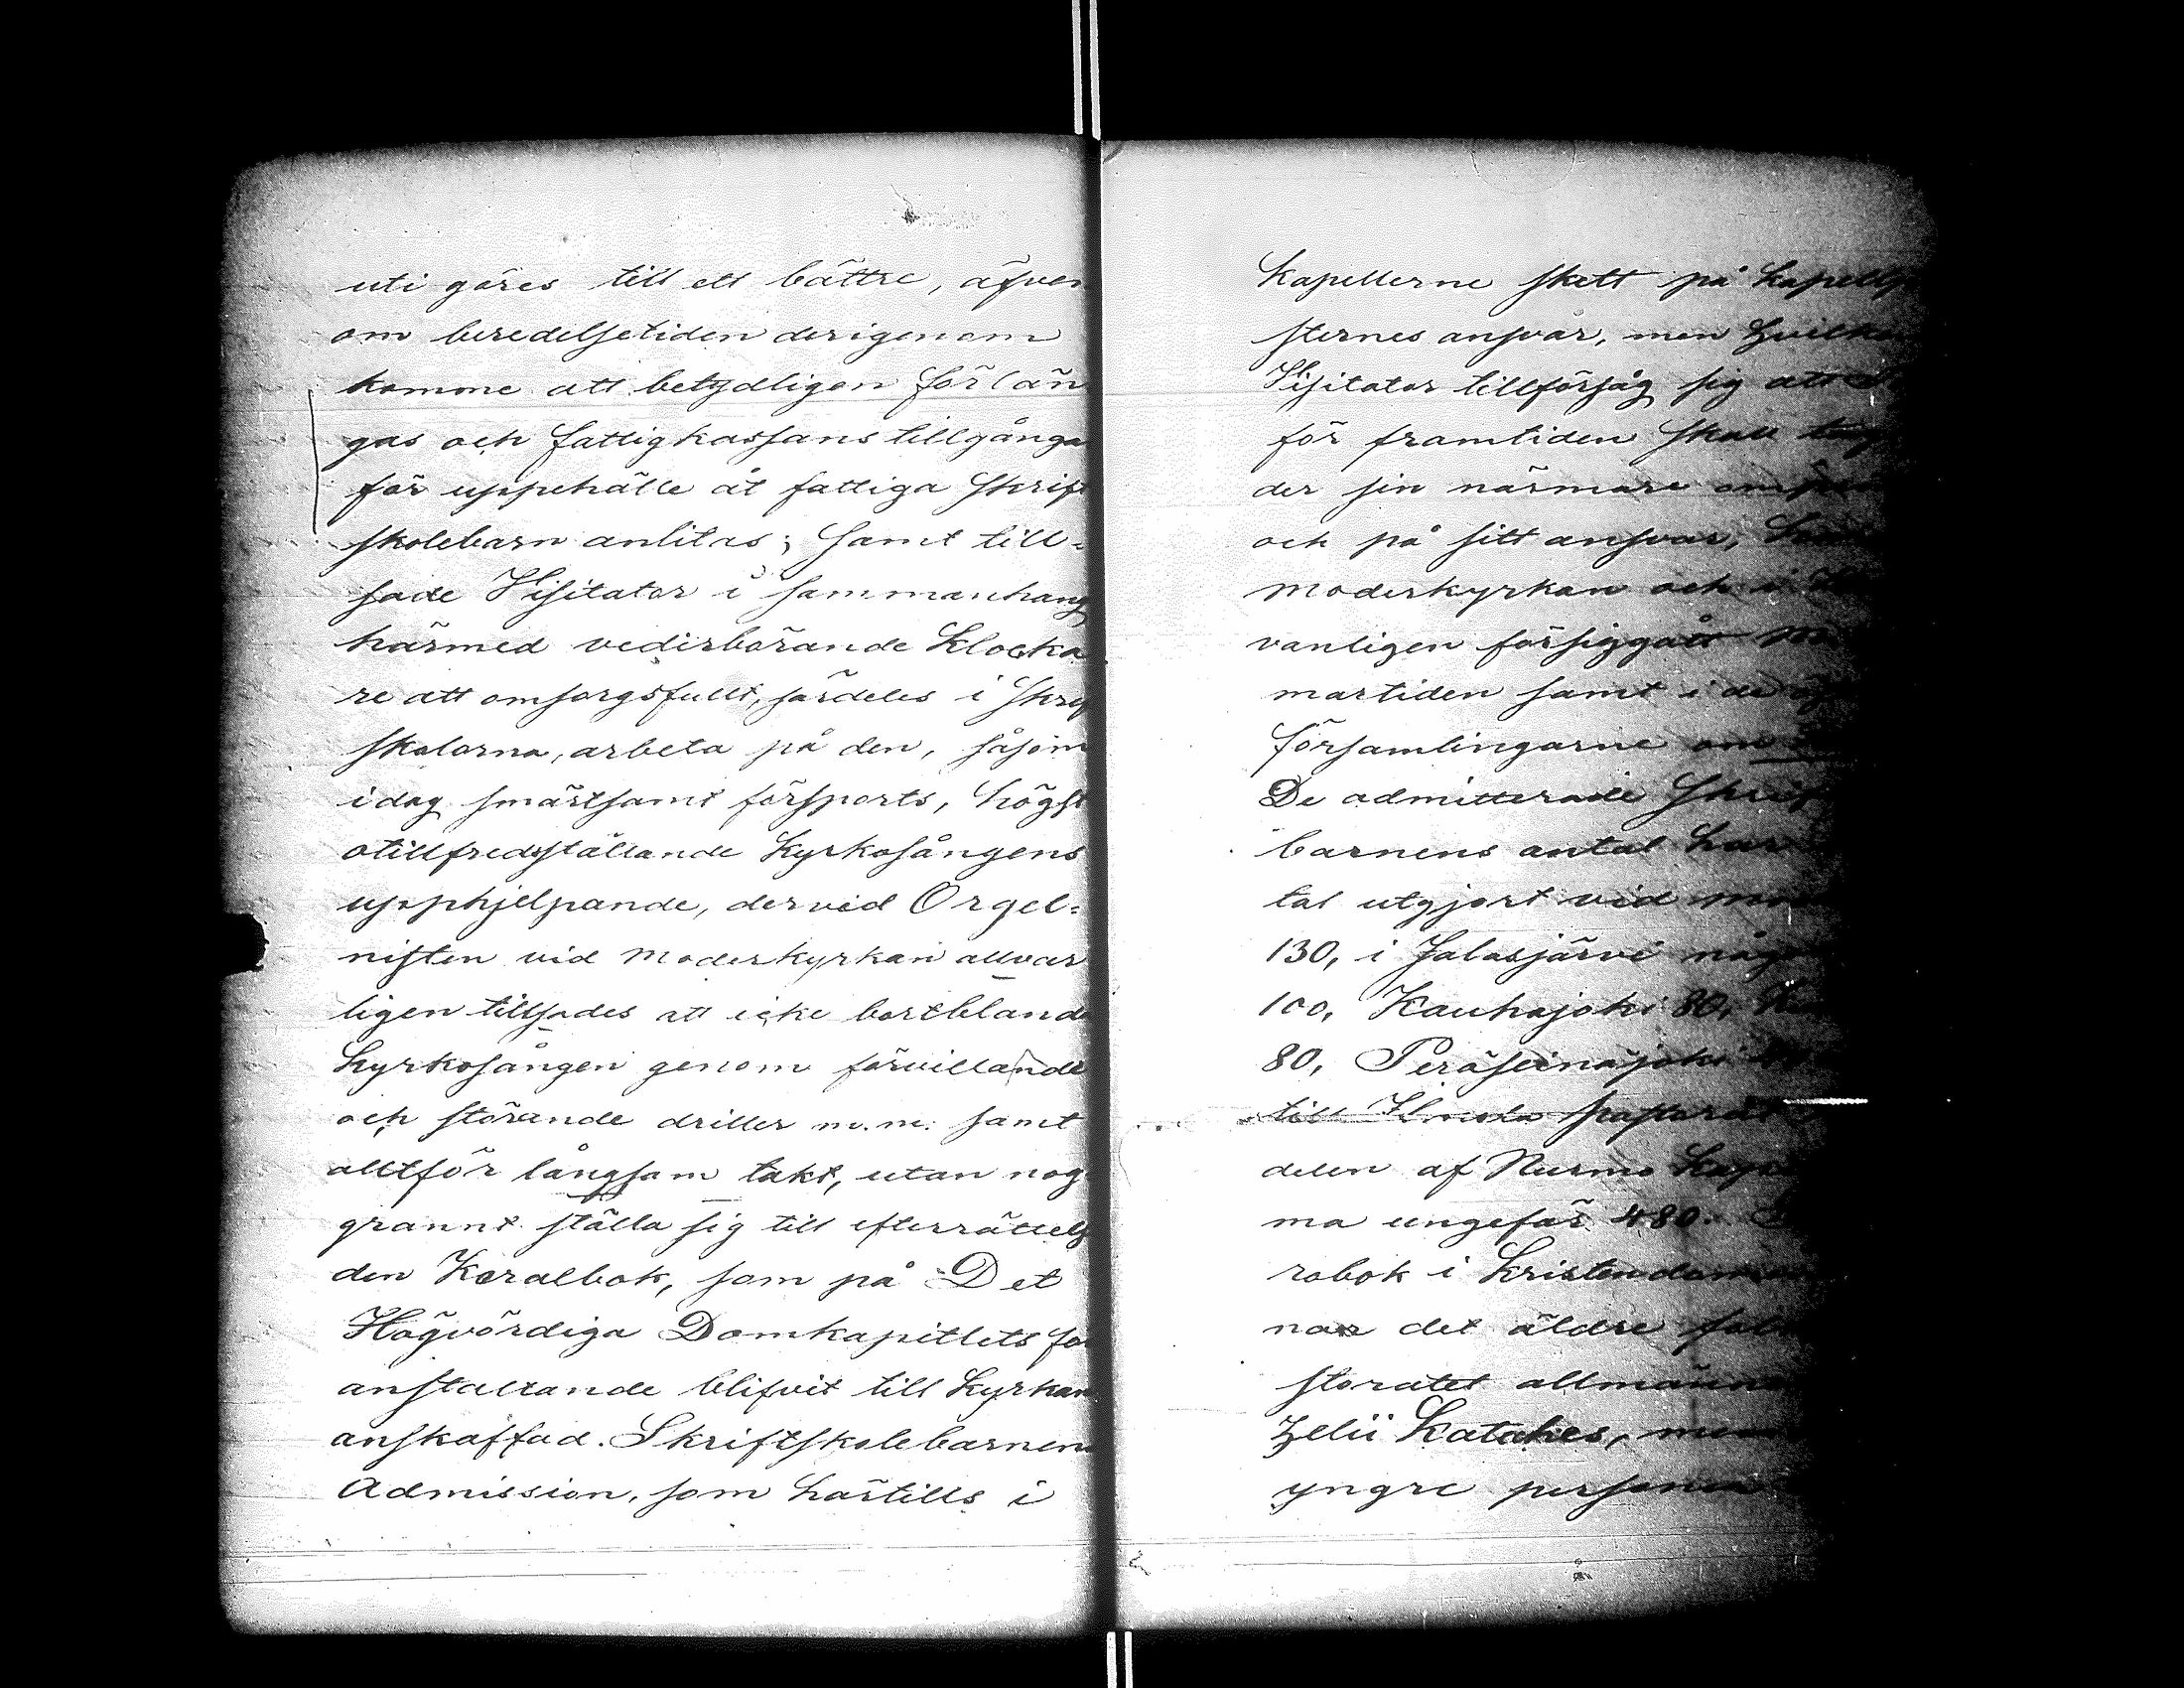 uti göres till ett bättre, äfven
om beredelsetiden derigenom
komme att betydligen förlän
gas och fattigkassans tillgånga
för uppehälle åt fattiga Skrif
skolebarn anlitas; samt till-
sade Visitator i sammanhang
härmed vederbörande Klocka
re att omsorgsfullt, särdeles i Skrif
skolorna, arbeta på den, såsom
idag smärtsamt försports, högst
otillfredsställande Kyrkosångens
upphjelpande, dervid Orgel-
nisten vid Moderkyrkan allvar
ligen tillsades att icke bortblanda
Kyrkosången genom förvillande
och störande driller m.m. samt
alltför långsam takt, utan nog
grannt ställa sig till efterrättels
den Koralbok, som på Det
Högvördiga Domkapitlets för
anstaltande blifvit till Kyrkan
anskaffad. Skriftskolebarnens
Admission, som härtills i
Kapellerne skett på Kapellp
sternes ansvar, men hvilken
Visitator tillförsåg sig att
för framtiden skall
der sin närmare
och på sitt ansvar,
Moderkyrkan och i
vanligen försiggått
martiden samt i de
församlingarne om
De admitterade Skrif
barnens antal har
tal utgjort vid
130, i Jalasjärvi någ
100, Kauhajoki 80,
80, Peräseinäjoki
till Ilmola Pastorat
delen af Nurmo Kap
ma ungefär 480.
robok i Kristendom
nar det äldre
storatet allmänn
zelii Kataches, men
yngre personer